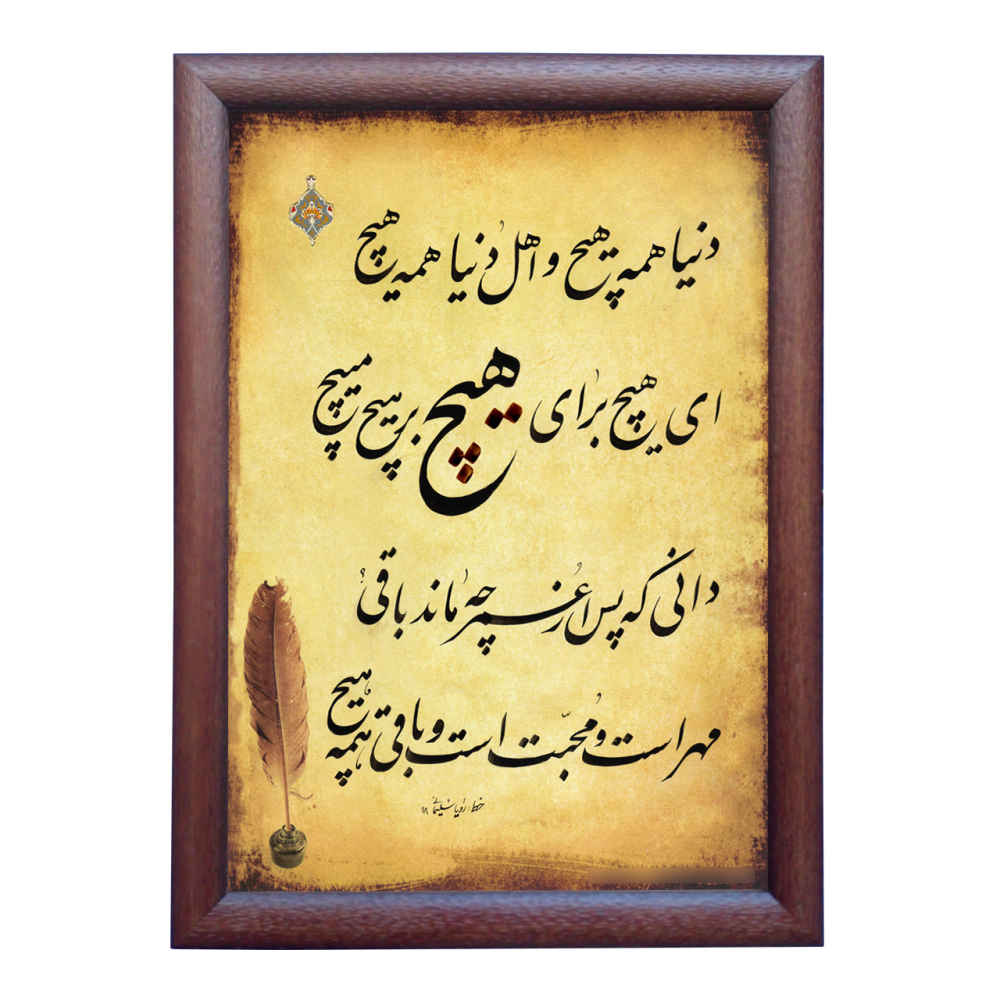 دنیا همه هیچ و اهل دنیا همه هیچ
ای هیچ برای هیچ بر هیچ مپیچ
دانی که پس از عمر چه ماند باقی
مهر است و محبت است و باقی همه هیچ
خط: رویا سلیمانی